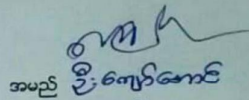 အမည် ဦးကျော်အောင်